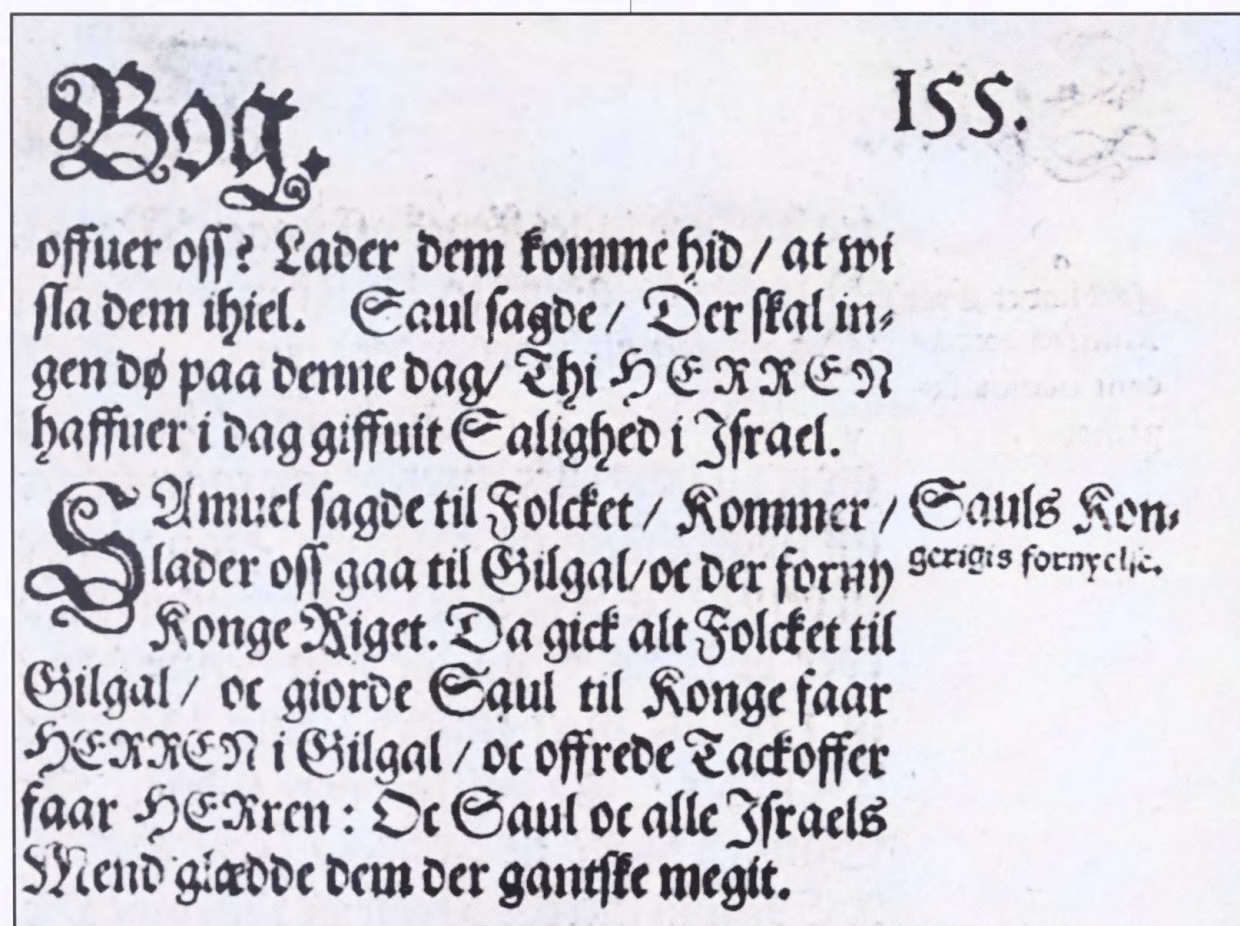 Bog.
155.
offuer oss? Lader dem komme hid / at wi
sla dem ihiel. Saul sagde / Der skal in-
gen dø paa denne dag/ Thi HERREN
haffuer i dag giffuit Salighed i Israel.
SAmuel sagde til Folcket / Kommer /
lader oss gaa til Gilgal/ oc der forny
Konge Riget. Da gick alt Folcket til
Gilgal/ oc giorde Saul til Konge faar
HERREN i Gilgal / oc offrede Tackoffer
faar HERren: Oc Saul oc alle Israels
Mend glædde dem der gantske megit.
Sauls Kon-
gerigis fornyelse.